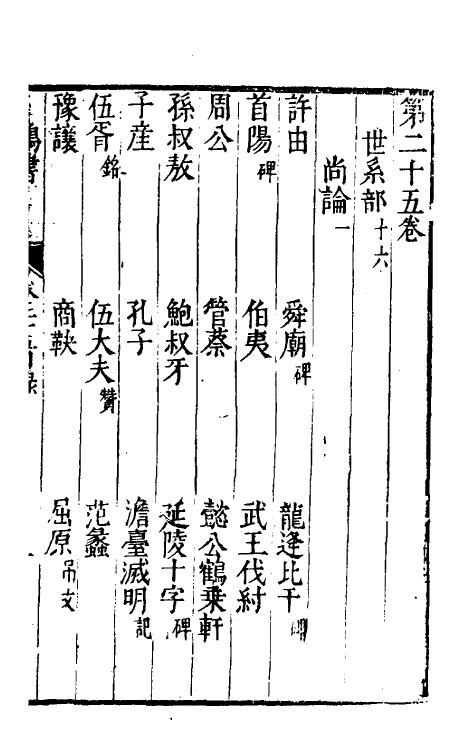 第二十五卷
世系部十六
尚論一
許由 舜廟碑 龍逢比干碑
首陽碑 伯夷 武王伐紂
周公 管蔡 懿公鶴乗軒
孫叔敖 鮑叔牙 延陵十字碑
子産 孔子 澹臺滅明記
伍胥銘 伍大夫贊 范蠡
豫讓 商鞅 屈原吊文